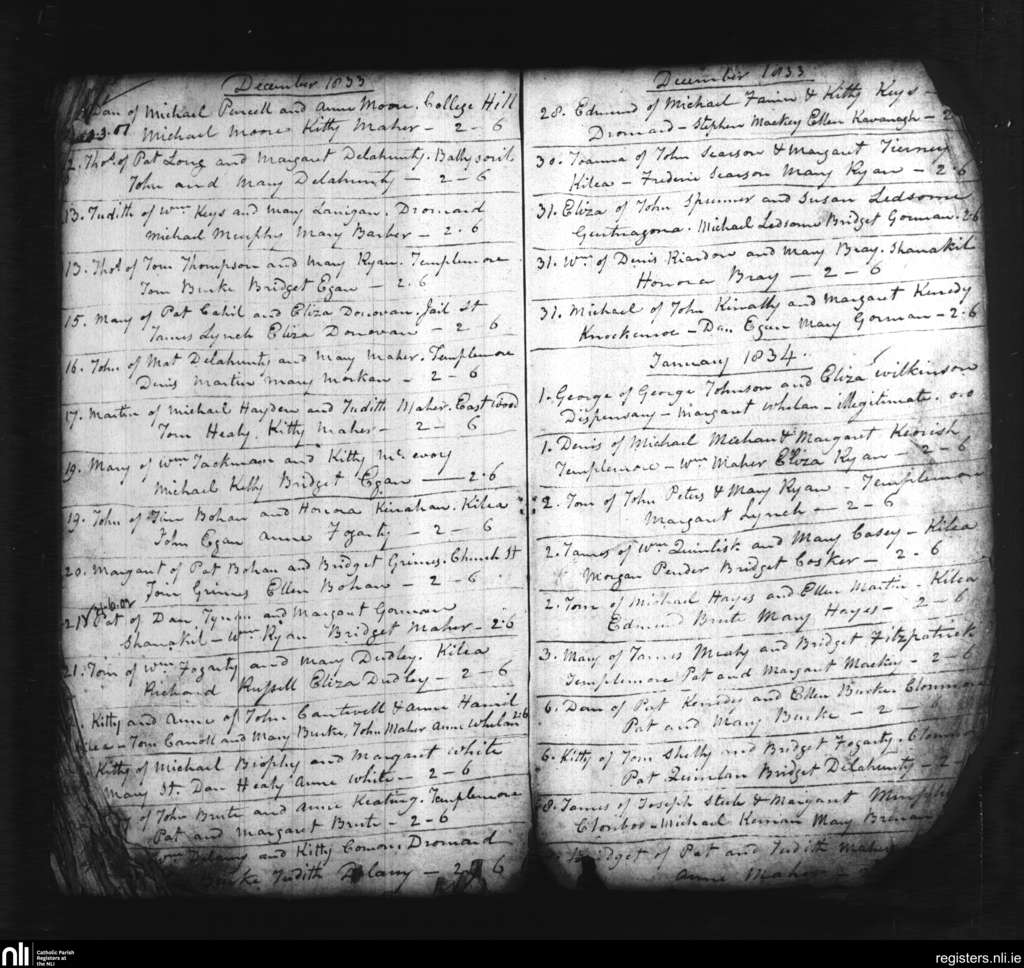 December 1833
Dan of Michael Purcell and Anne Moore. College Hill
Michael Moore Kitty Maher - 2 - 6
2. Thos. of Pat Long and Margaret Delahunty.
John and Mary Delahunty - 2 - 6
13. Judith of Wm Keys and Mary Lanigan. Dromard
Michael Murphy Mary Barber - 2 . 6
13. Thos. of Tom Thompson and Mary Ryan. Templemore
Tom Burke Bridget Egan - 2.6
15. Mary of Pat Cahil and Eliza Donovan. Jail St
James Lynch Eliza Donovan - 2 - 6
16. John of Mat Delahunty and Mary Maher. Templemore
Denis Martin Mary Morkan - 2 - 6
17. Martin of Michael Hayden and Judith Maher. East wood
Tom Healy. Kitty Maher - 2 - 6
19. Mary of Wm Jackman and Kitty McEvoy
Michael Kelly Bridget Egan - 2.6
19. John of Tim Bohan and Honora Kinahan. Kilea
John Egan Anne Fogarty - 2 - 6
20. Margaret of Pat Bohan and Bridget Grimes. Church St
Tom Grimes Ellen Bohan - 2 - 6
21 Pat of Dan Tynan and Margaret Gorman
Shanakil - Wm Ryan Bridget Maher - 2.6
21. Tom of Wm Fogarty and Mary Dudley. Kilea
Richard Russell Eliza Dudley - 2 - 6
Kitty and Anne of John Cantwell & Anne Hamil
Tom Carroll and Mary Burke, John Maher Anne Whelan 2.6
Kitty of Michael Brophy and Margaret White
Mary St. Dan Healy Anne White - 2 - 6
of John Brute and Anne Keating. Templemore
Pat and Margaret Brute - 2 - 6
Wm Delany and Kitty Comors. Dromard
Burke Judith Delany - 2 - 6
December 1833
28. Edmund of Michael & Kitty Keys -
Dromard - Stephen Mackey Ellen Kavanagh - 2
30. Joanna of John Searson & Margaret Tierney
Kilea - Frederic Searson Mary Ryan - 2.6
31. Eliza of John Spunner and Susan Ledsome
Gurtnagona. Michael Ledsome Bridget Gorman. 2.6
31. Wm. of Denis Riardon and Mary Bray. Shanakil
Honora Bray - 2 - 6
31. Michael of John Kinally and Margaret Kenedy
Knockenroe - Dan Egan Mary Gorman - 2.6
January 1834.
1. George of George Johnson and Eliza Wilkinson
Dispensary - Margaret Whelan - illegitimate. 0.0
1. Denis of Michael Meehan & Margaret Kevrish
Templemore - Wm Maher Eliza Ryan - 2 - 6
2. Tom of John Peters & Mary Ryan - Templemore
Margaret Lynch - 2 - 6
2. James of Wm Quinlisk and Mary Casey - Kilea
Morgan Pender Bridget Cosker - 2 - 6
2. Tom of Michael Hayes and Ellen Martin - Kilea
Edmund Brute Mary Hayes - 2 - 6
3. Mary of James Meahy and Bridget Fitzpatrick
Templemore Pat and Margaret Mackey - 2 - 6
6. Dan of Pat Kennedy and Ellen Burke.
Pat and Mary Burke - 2 -
6. Kitty of Tom Shelly and Bridget Fogarty.
Pat Quinlan Bridget Delahunty - 2
8. James of Joseph Steele & Margaret Murphy
Clonboo - Michael Kervan Mary Brenan
Bridget of Pat and Judith Maher
Anne Maher -
nli
Catholic Parish
Registers at
the NLI
registers.nli.ie